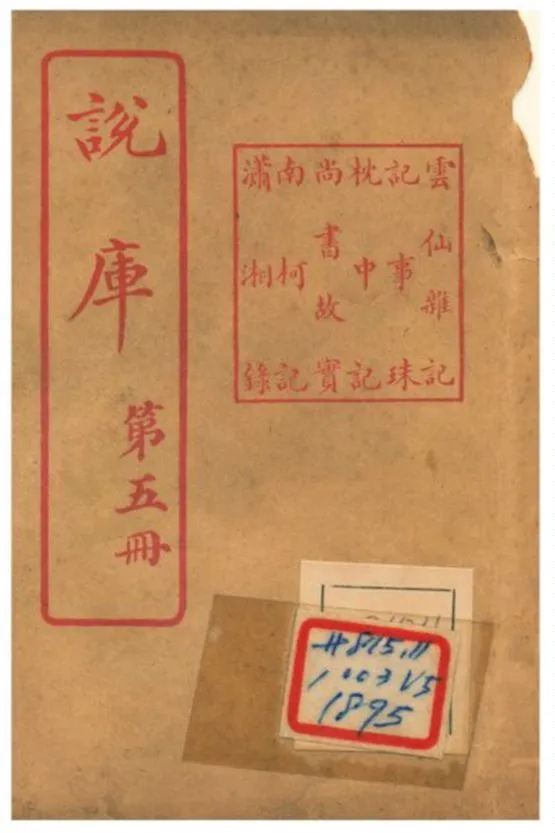 說庫
第五冊
雲仙雜記
記事珠
枕中記
尚書故實
南柯記
瀟湘錄
H875.11
1003 V5
1895